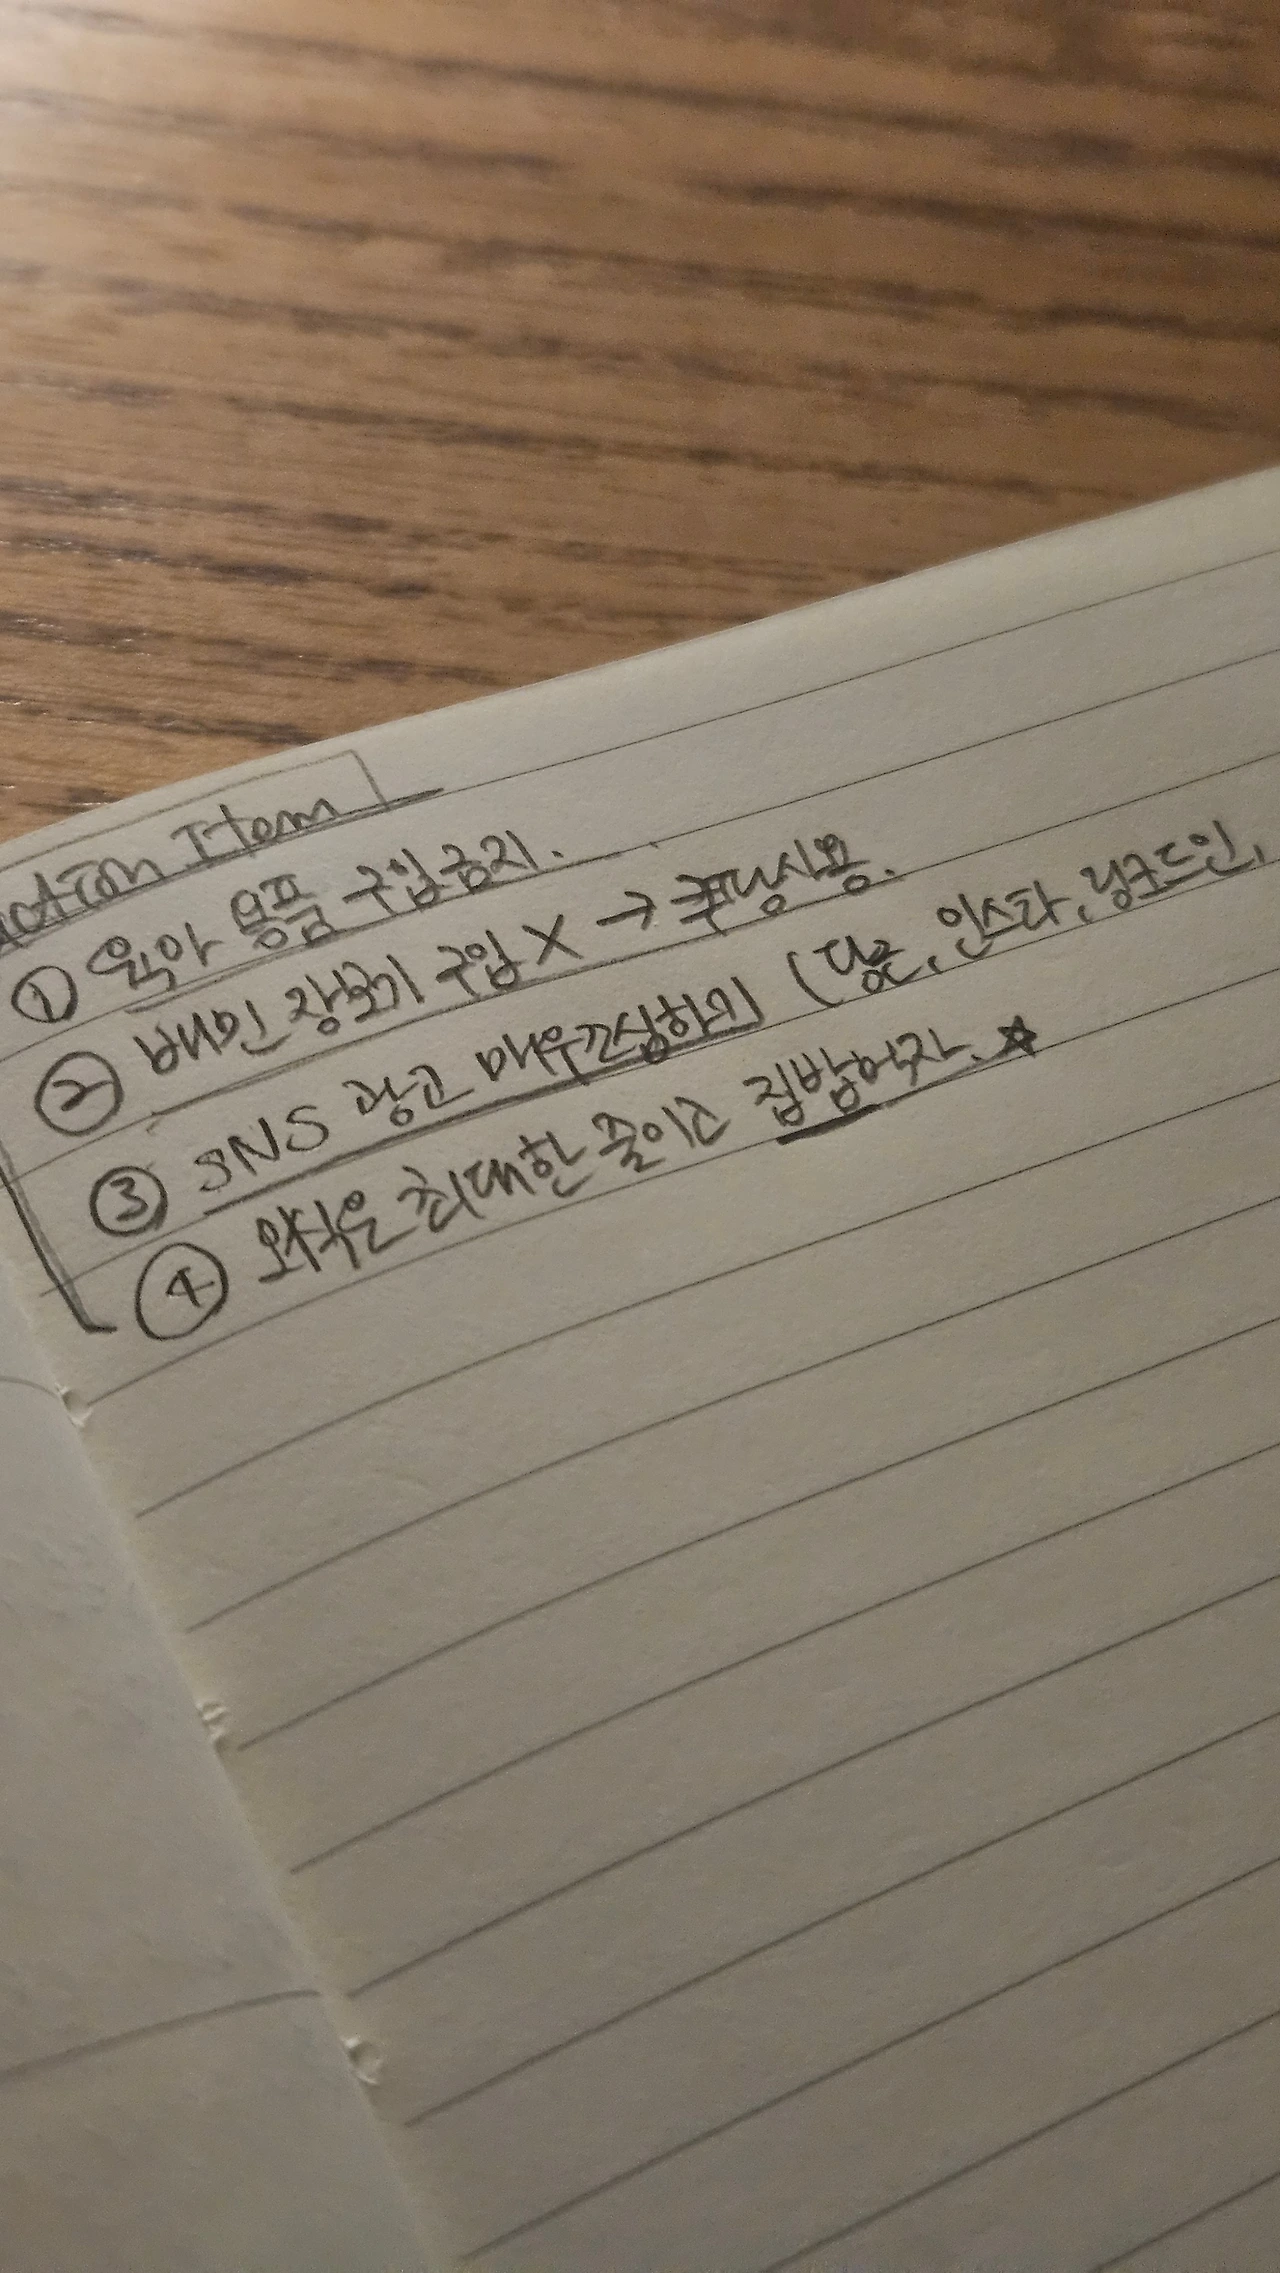 Action Item
① 육아 용품 구입금지.
② 배민 장보기 구입 X → 쿠팡사용.
③ SNS 광고 매우조심하기 (당근, 인스타, 링크드인,
④ 외식은 최대한 줄이고 집밥먹자. ☆